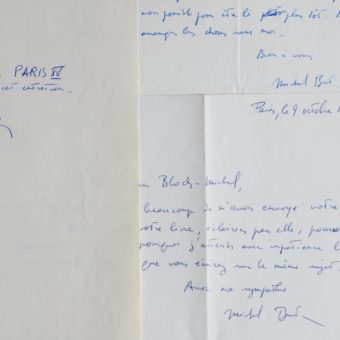 PARIS XV
cet entretien.
mon possible pour être le plus tôt. 
arranger les choses sans moi.
Bien à vous
Michel But
Paris, le 9 octobre 1
Bloch-Michel,
beaucoup de m'avoir envoyé votre
votre livre, éclairés par elle, pour
pourquoi j'attends avec impatience l
que vous écrivez sur le même sujet.
Avec ma sympathie
Michel But